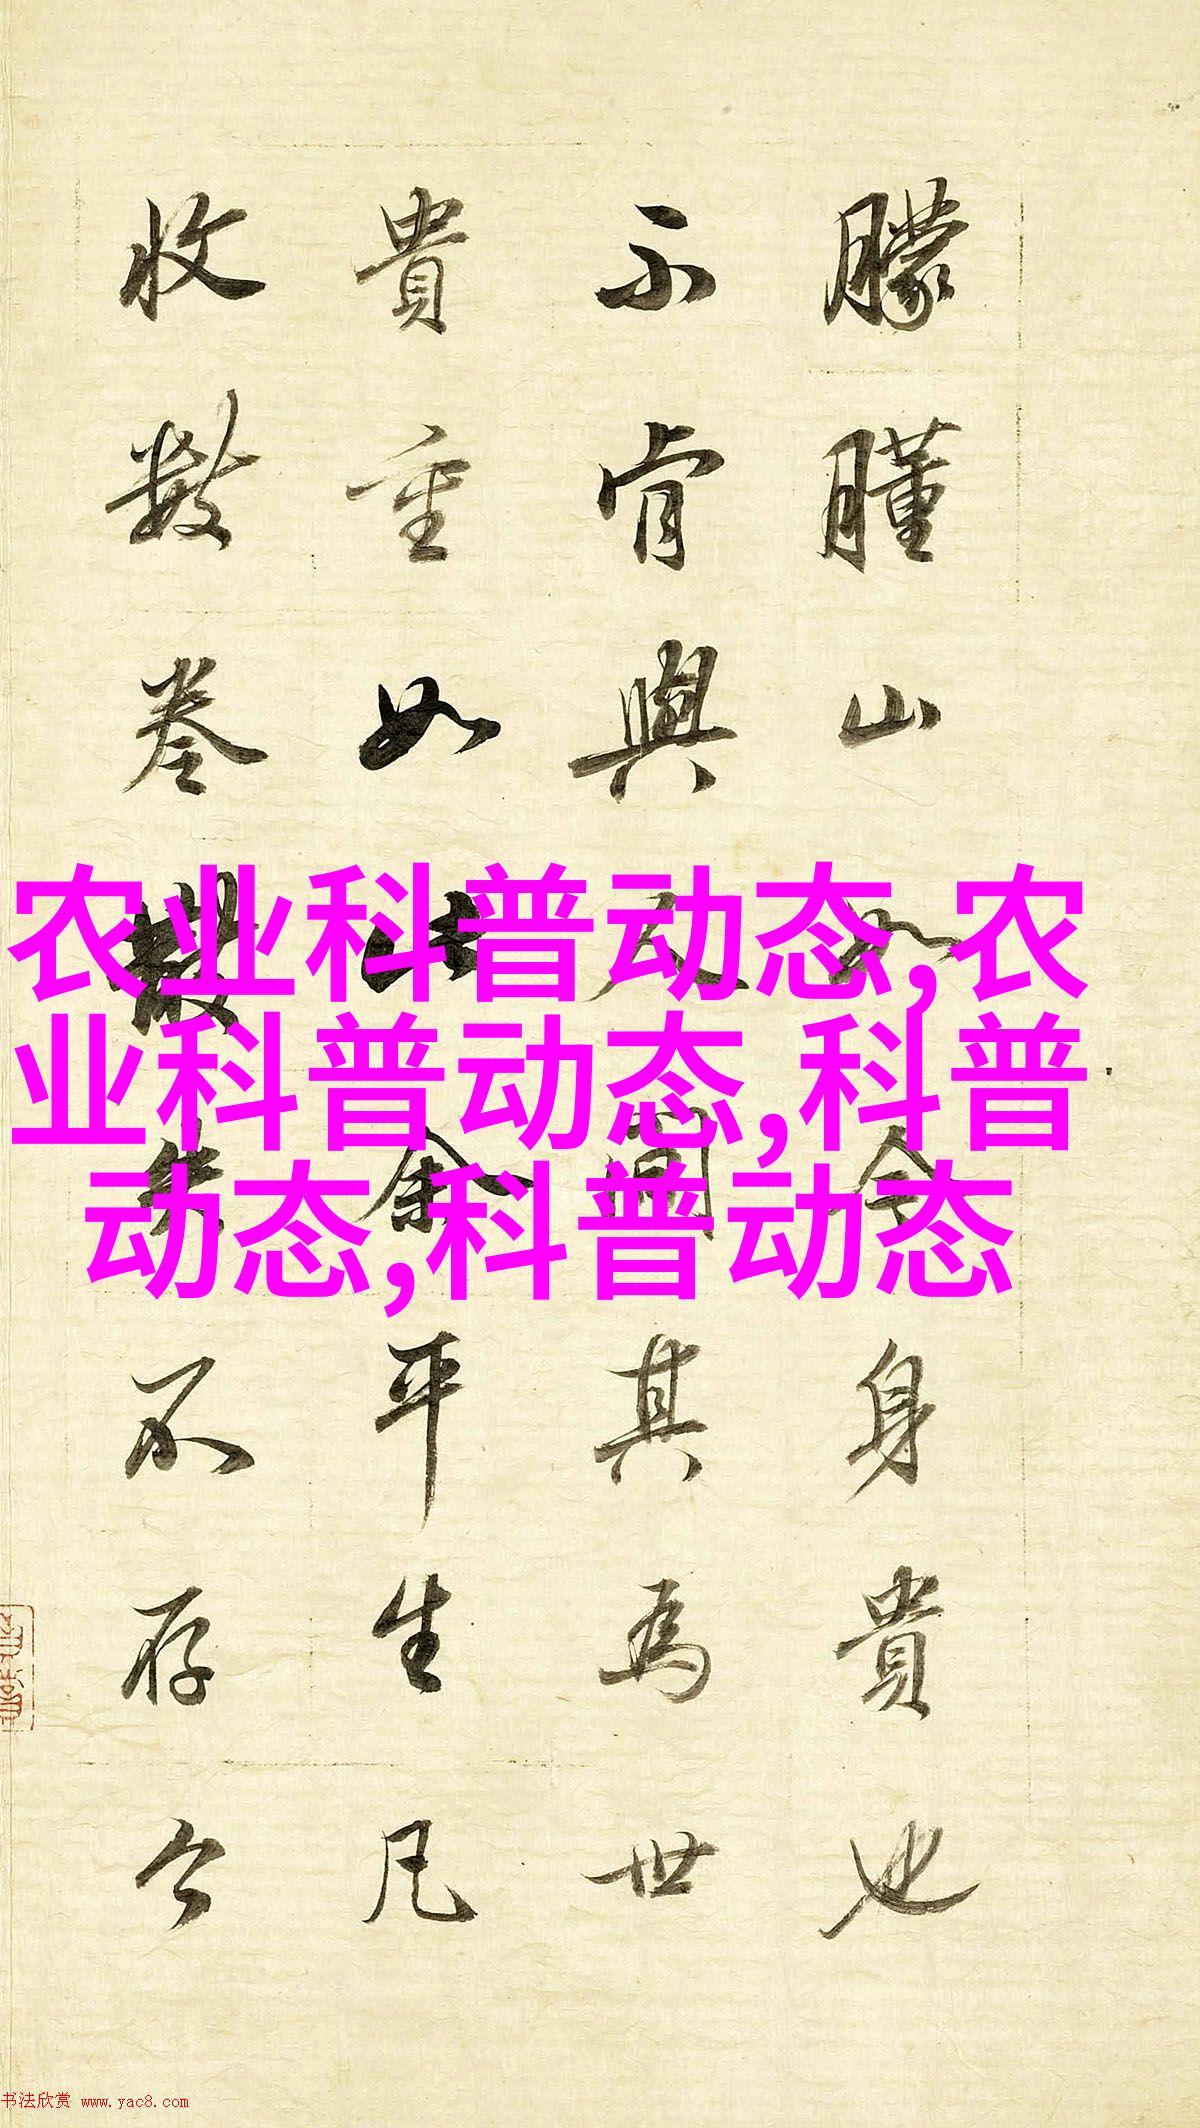 朦朣山今身貴也
不肯與人圖其為世
貴重如此余平生凡
收數卷散失不存今
农业科普动态,农
业科普动态,科普
动态,科普动态
书法欣赏 www.yac8.com